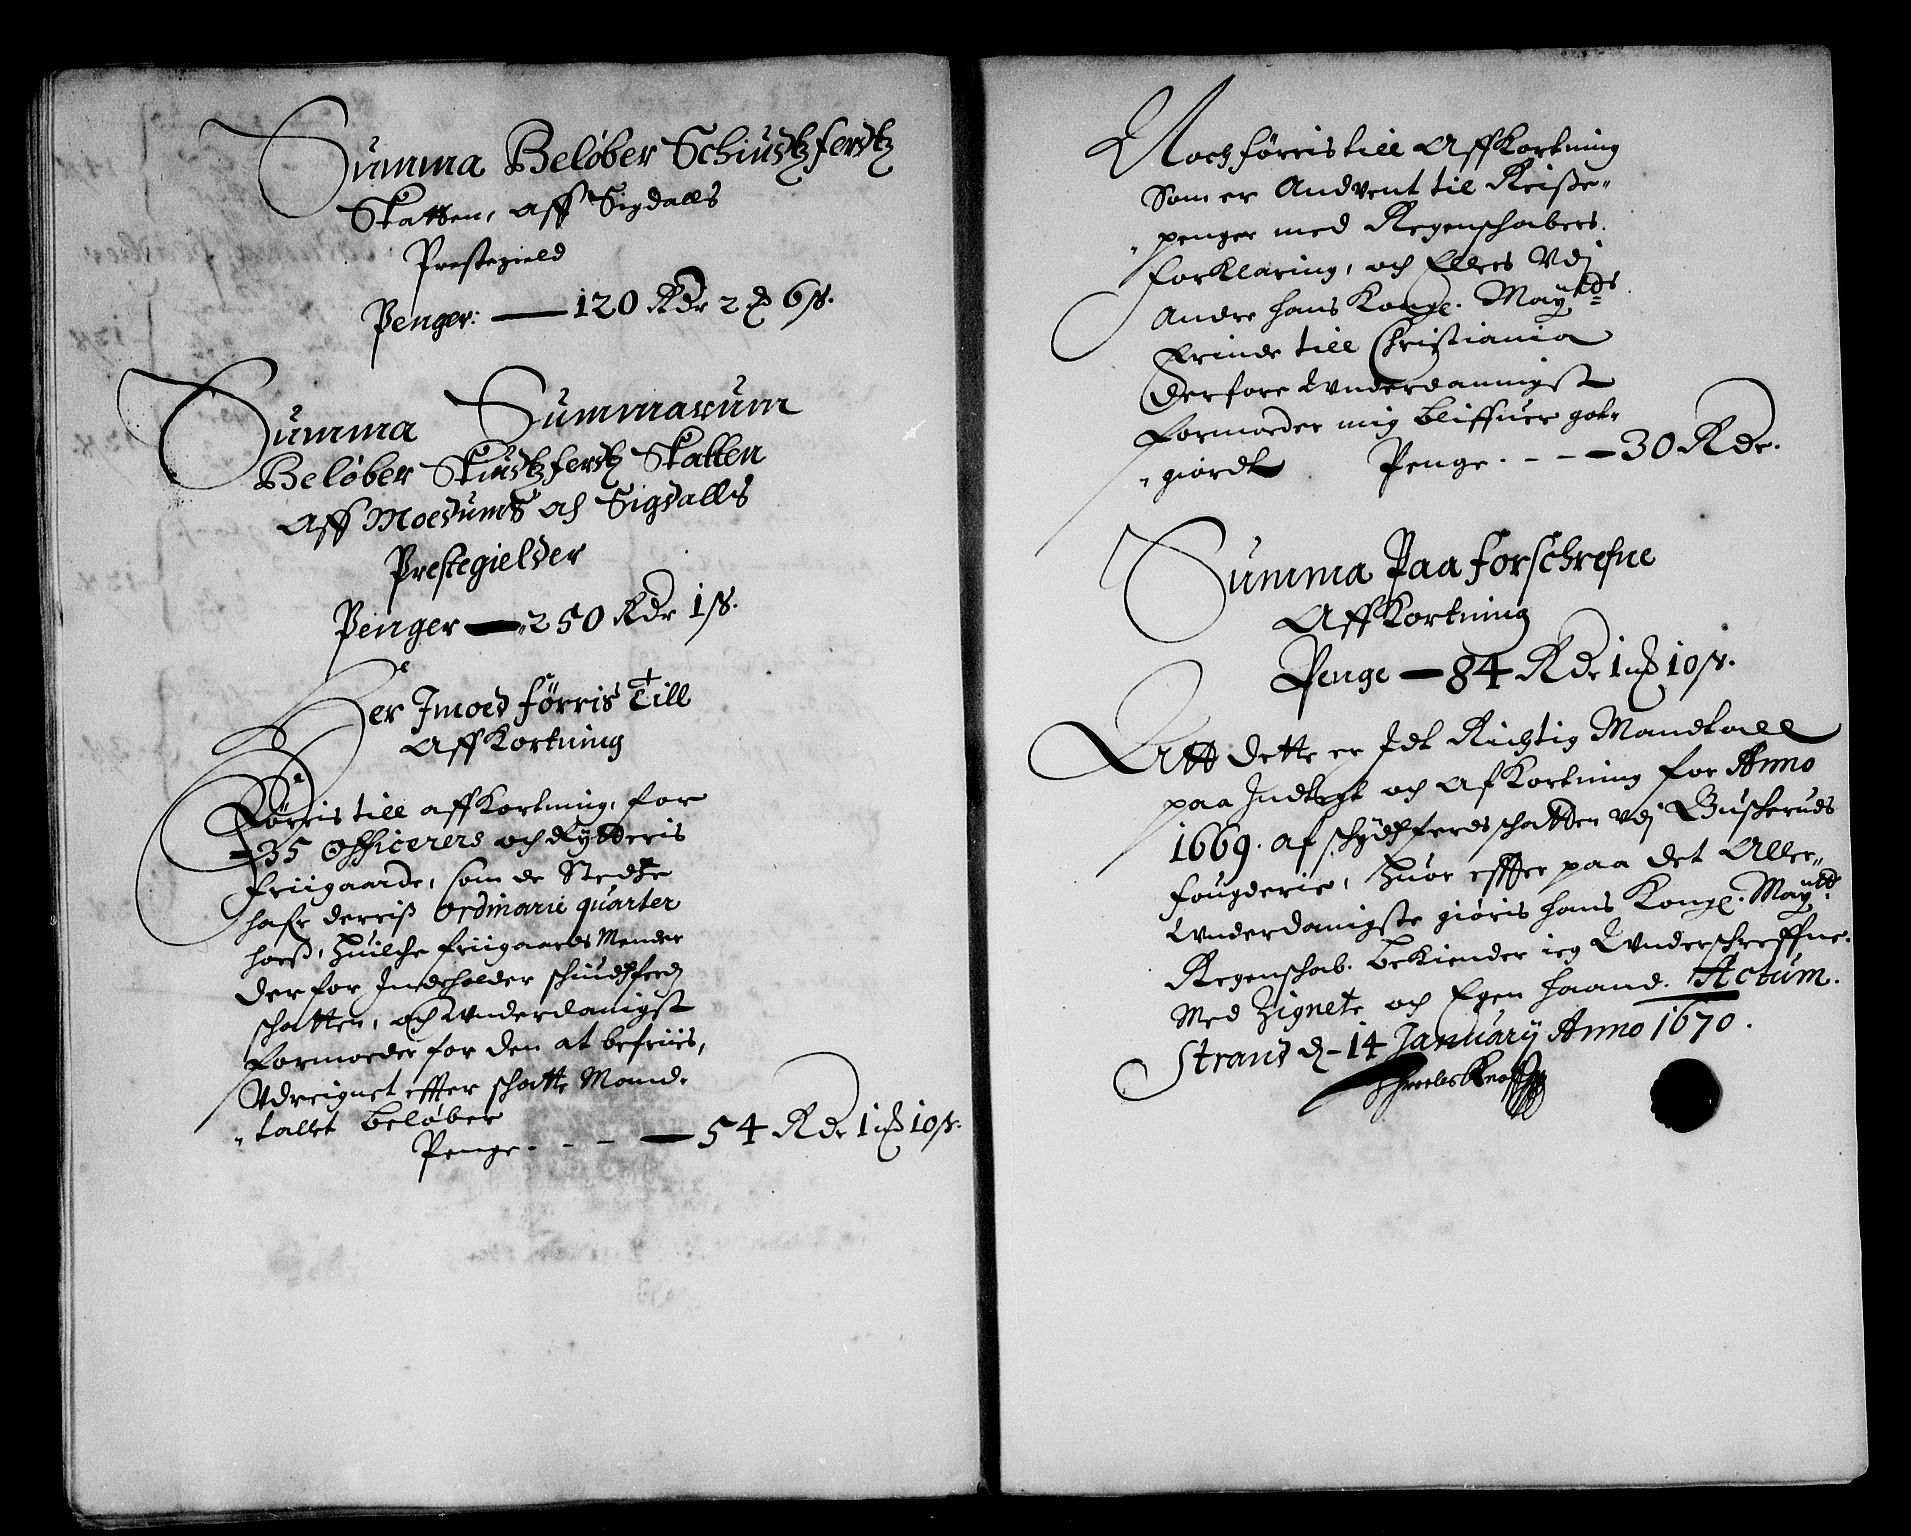 Summa Beløber Schiudtzferdtz
Skatten, aff Sigdalls
Prestegield
Penger: — 120 Rdr 2 ꝶ 6 ß.
Summa Summarum
Beløber Skiudtzferdtz Skatten
Aff Modums och Sigdalls
Prestegielder
Penger — 250 Rdr 1 ß.
Her Imoed førris Till
Aff Kortning
Førris till aff Kortning, for
35 Officerers och Rytteris
friigaarde, som de Stedtze
hafr derriß Ordinarie quarter
hoeß, huilche friigaards Mender
der for Indeholder schiudtzferdz
schatten, och Vnderdanigst
formoeder for den at befriis,
Vdreignet effter schatte Mand-
tallet beløber
Penge - - - — 54 Rdr 1 mꝶ 10 ß.
Noch førris till Aff Kortning
Som er Andvent til Reiße-
penger med Regenschabers
forklaring, och Ellers vdj
Andre hans Kongl. Maytts
Erinde till Christiania
Derfore Vnderdannigst
formoeder mig bliffuer got-
giordt Penge - - - — 30 Rdr.
Summa Paa forschrefne
Aff Kortning
Penge — 84 Rdr 1 mꝶ 10 ß.
Att dette er Idt Richtig Mandtall
paa Indtegt och Af Kortning for Anno
1669. af schydtzferds schatten vdj Buskeruds
fougderie, huor effter paa det Aller-
Vnderdanigste giøris hans Kongl. Maytt
Regenschab. bekiender ieg Vnderschreffne
Med Zignete och Egen haand. Actum.
Strand d - 14 January Anno 1670.